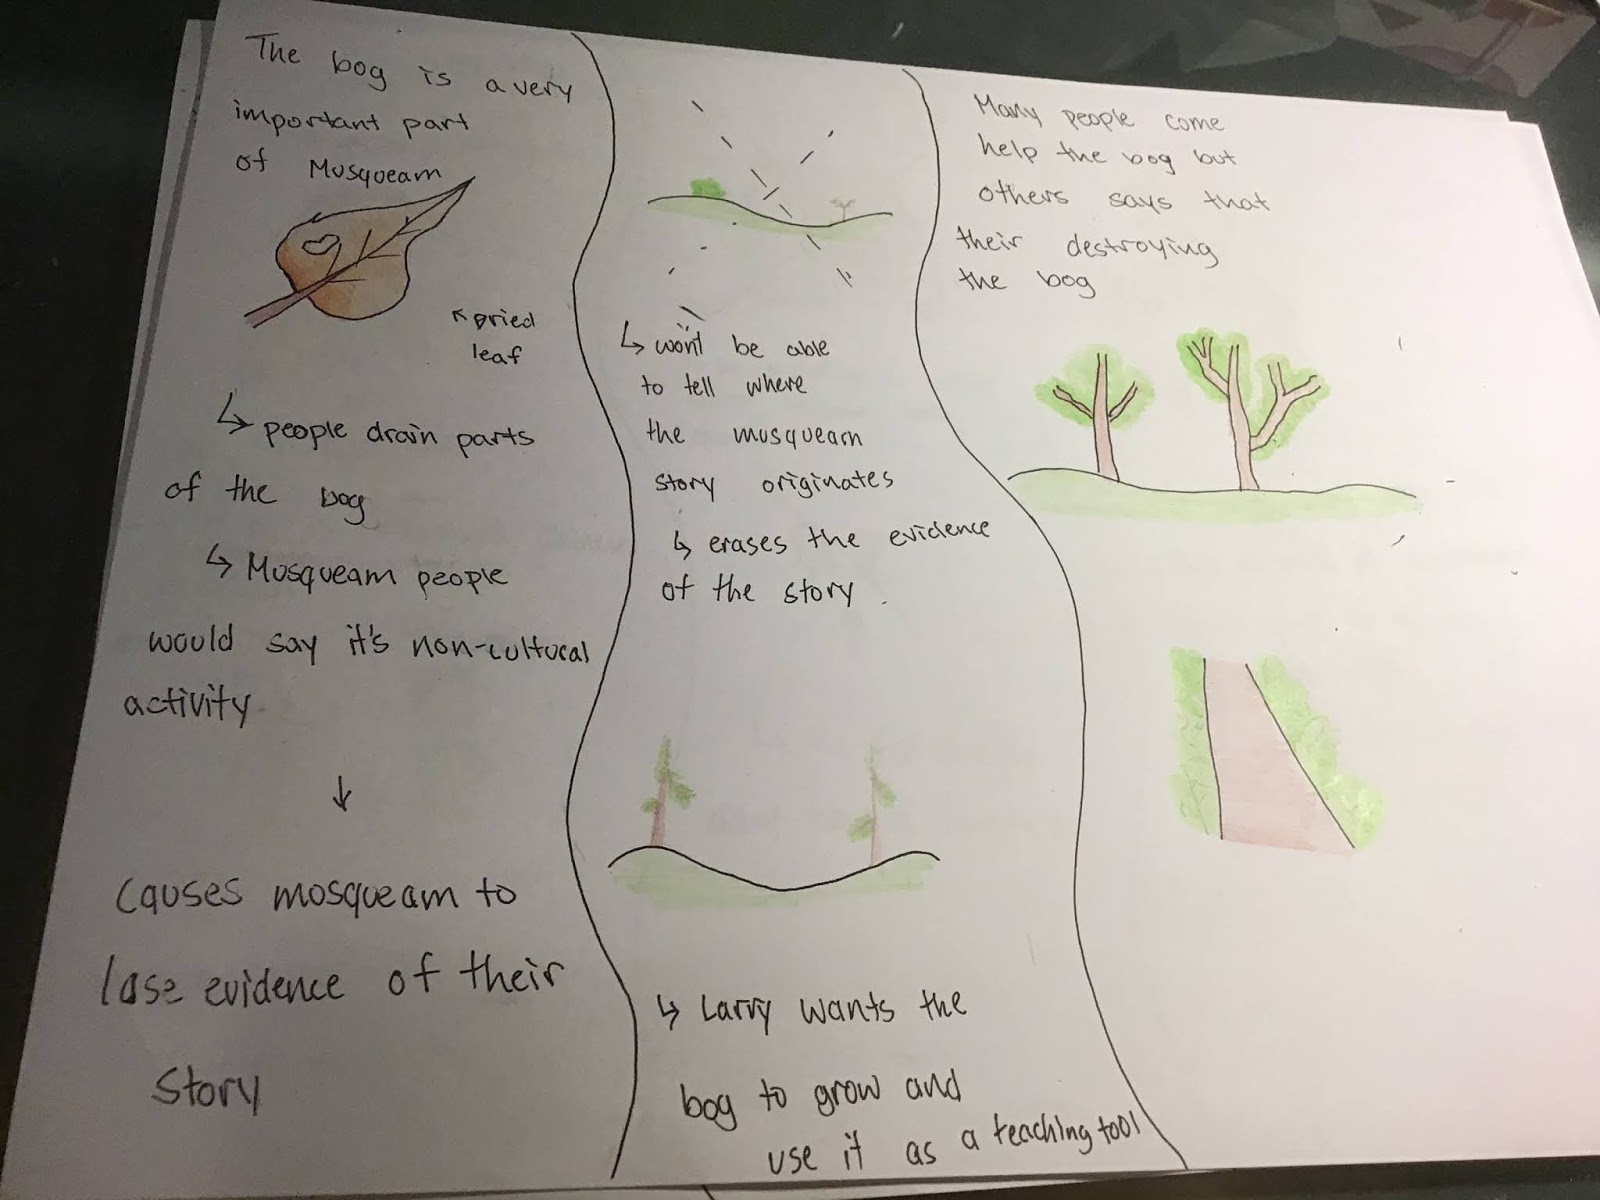 The bog is a very
important part
of Musqueam
↖ Dried
leaf
↳ people drain parts
of the bog
↳ Musqueam people
would say it's non-cultural
activity
↓
causes mosqueam to
lose evidence of their
story
↳ won't be able
to tell where
the musqueam
story originates
↳ erases the evidence
of the story.
↳ Larry wants the
bog to grow and
use it as a teaching tool
Many people come
help the bog but
others says that
their destroying
the bog